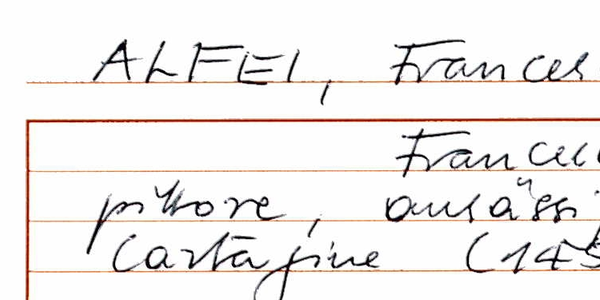 ALFEI, Frances
Frances
pittore, ansässi
Cartagine (145